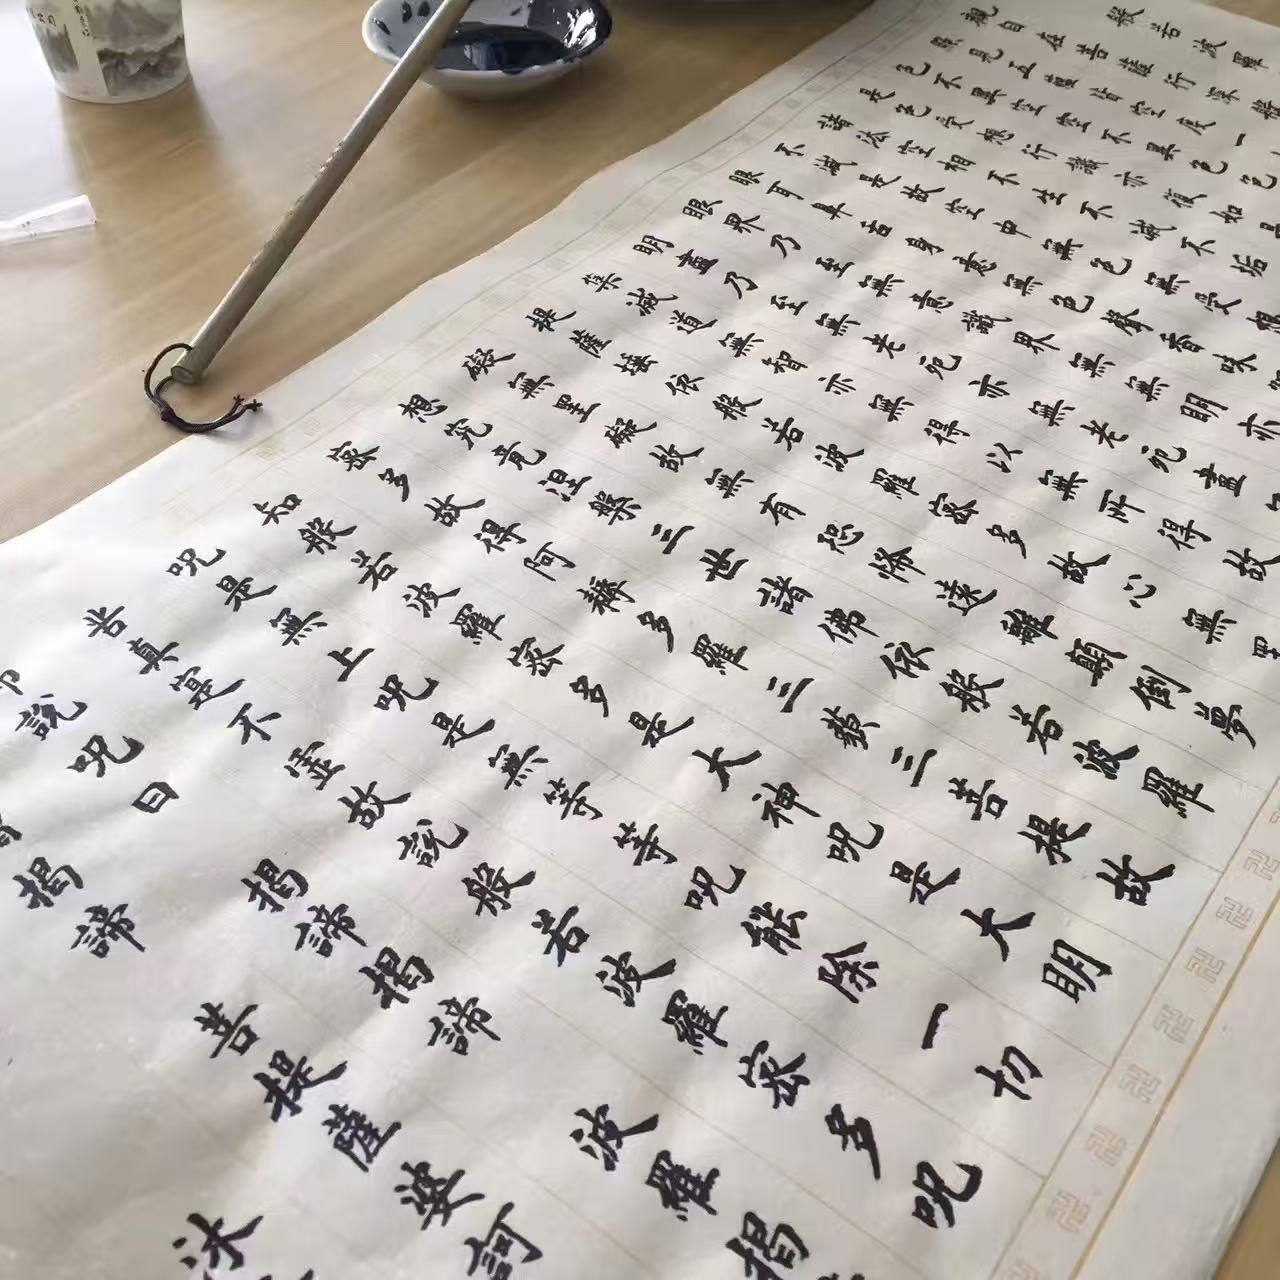 般若波羅
觀自在菩薩行深般
照見五蘊皆空度一
色不異空空不異色色
是色受想行識亦復如是
諸法空相不生不滅不垢
不減是故空中無色無受想
眼耳鼻舌身意無色聲香味
眼界乃至無意識界無無明亦
明盡乃至無老死亦無老死盡
集滅道無智亦無得以無所得故
提薩埵依般若波羅密多故心無罣
礙無罣礙故無有恐怖遠離顛倒夢
想究竟涅槃三世諸佛依般若波羅
密多故得阿耨多羅三藐三菩提故
知般若波羅密多是大神呪是大明
呪是無上呪是無等等呪能除一切
苦真實不虛故說般若波羅密多呪
即說呪曰 揭諦揭諦 波羅揭
揭諦 菩提薩婆訶
沐